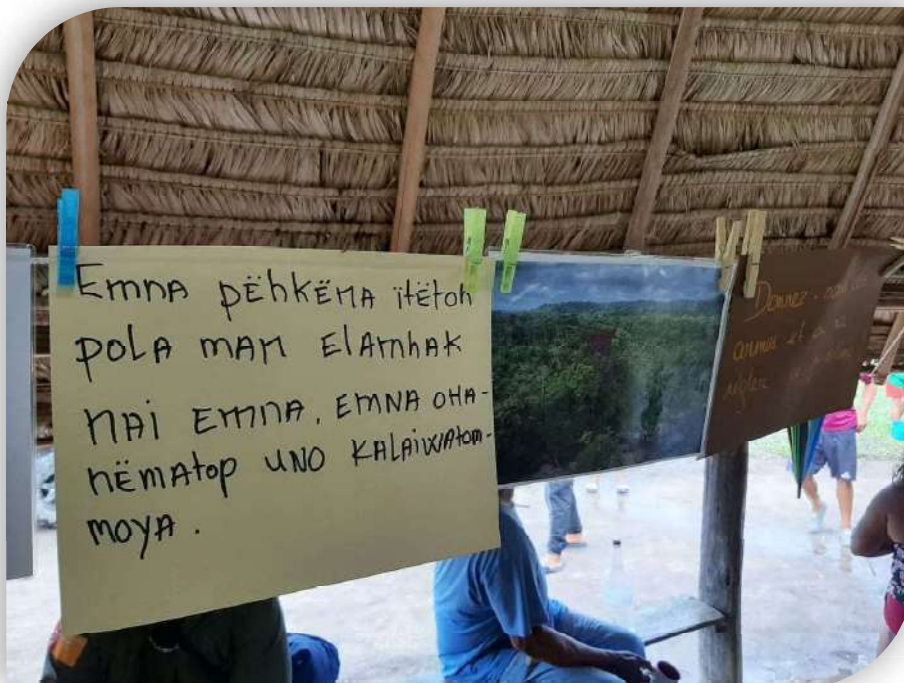 Emna pëhkëna ïtëtoh
pola man elamhak
nai emna, emna oha-
nëmatop uno kalaiwatom-
moya.
Donnez-
armes et
régler